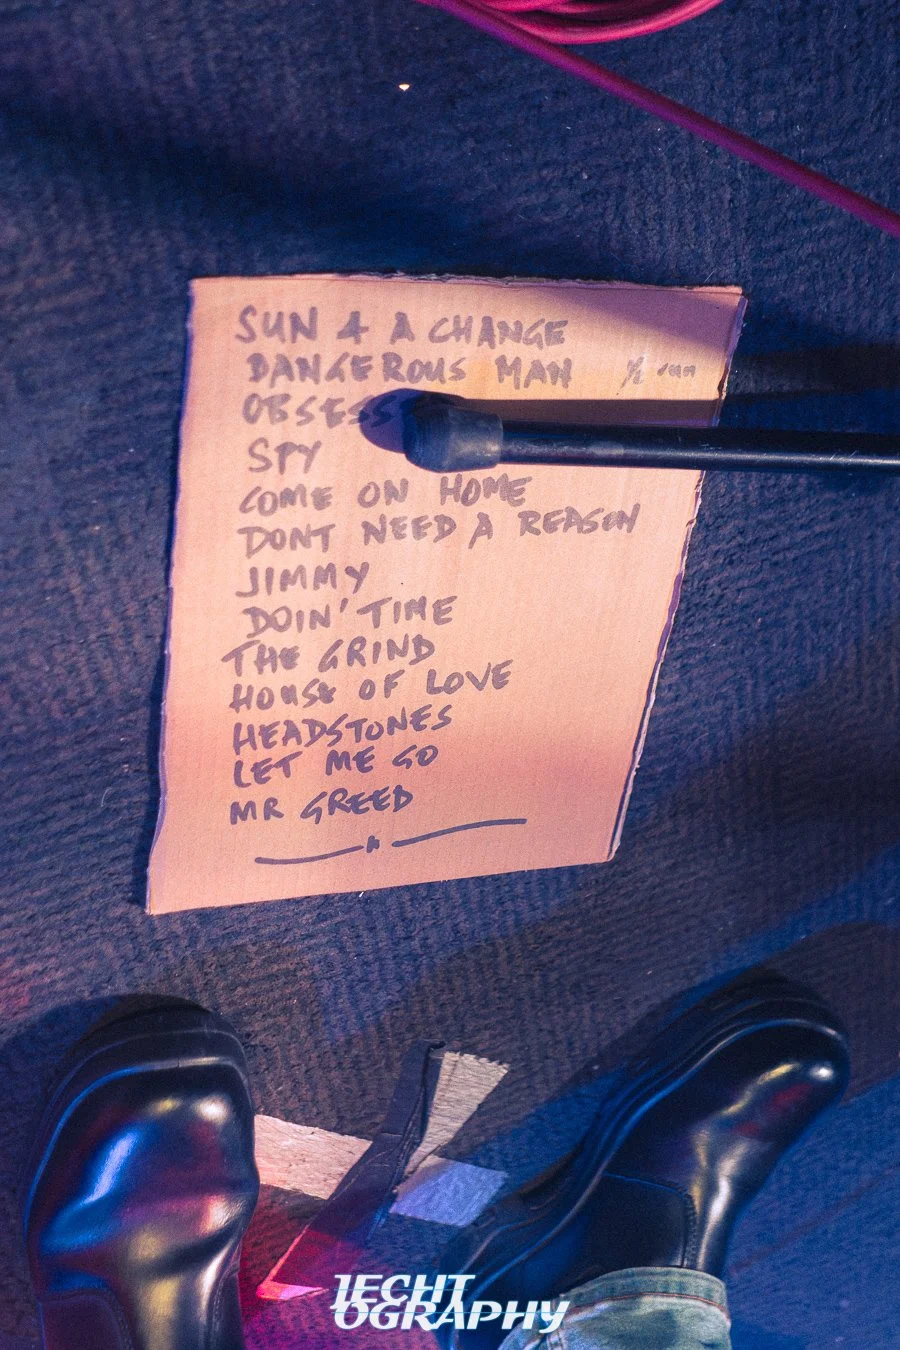 SUN 4 A CHANGE
DANGEROUS MAN
OBSESS
SPY
COME ON HOME
DONT NEED A REASON
JIMMY
DOIN' TIME
THE GRIND
HOUSE OF LOVE
HEADSTONES
LET ME GO
MR GREED
IECHT
OGRAPHY